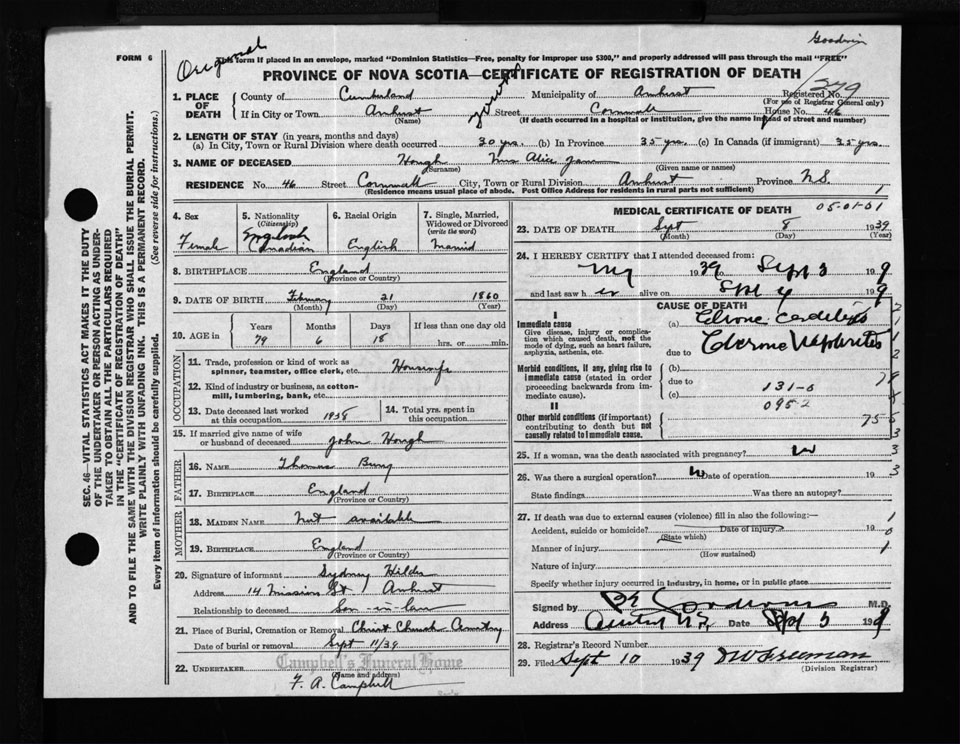 Goodwin
Original
FORM 6
This form if placed in an envelope, marked "Dominion Statistics—Free, penalty for improper use $300," and properly addressed will pass through the mail "FREE"
PROVINCE OF NOVA SCOTIA—CERTIFICATE OF REGISTRATION OF DEATH
279
Registered No.
(For use of Registrar General only)
1. PLACE OF DEATH
County of Cumberland Municipality of Amherst
If in City or Town Amherst Street Cornwall House No. 46
(Name) (If death occurred in a hospital or institution, give the name instead of street and number)
2. LENGTH OF STAY (in years, months and days)
(a) In City, Town or Rural Division where death occurred 30 yrs. (b) In Province 35 yrs. (c) In Canada (if immigrant) 35 yrs
3. NAME OF DECEASED Hough Mrs Alice Jane
(Surname) (Given name or names)
RESIDENCE No. 46 Street Cornwall City, Town or Rural Division Amherst Province N.S.
(Residence means usual place of abode. Post Office Address for residents in rural parts not sufficient) 1
4. Sex
Female
5. Nationality
(Citizenship)
English
Canadian
6. Racial Origin
English
7. Single, Married, Widowed or Divorced
(write the word)
Married
8. BIRTHPLACE England
(Province or Country)
9. DATE OF BIRTH February 21 1860
(Month) (Day) (Year)
10. AGE in
Years Months Days If less than one day old
79 6 18 hrs. or min.
OCCUPATION
11. Trade, profession or kind of work as spinner, teamster, office clerk, etc. Housewife
12. Kind of industry or business, as cotton-mill, lumbering, bank, etc.
13. Date deceased last worked at this occupation 1938
14. Total yrs. spent in this occupation
15. If married give name of wife or husband of deceased John Hough
FATHER
16. NAME Thomas
17. BIRTHPLACE England
(Province or Country)
MOTHER
18. MAIDEN NAME Not available
19. BIRTHPLACE England
(Province or Country)
20. Signature of informant Sydney Hilder
Address 14 Mission St Amherst
Relationship to deceased Son-in-law
21. Place of Burial, Cremation or Removal Christ Church Cemetery
Date of burial or removal Sept 11/39
22. UNDERTAKER Campbell's Funeral Home
(Name and address)
F. A. Campbell
MEDICAL CERTIFICATE OF DEATH
05-01-01
23. DATE OF DEATH Sept 8 1939
(Month) (Day) (Year)
24. I HEREBY CERTIFY that I attended deceased from:
1939 to Sept 1939
and last saw her alive on Sept 4 1939
CAUSE OF DEATH
I
Immediate cause
Give disease, injury or complication which caused death, not the mode of dying, such as heart failure, asphyxia, asthenia, etc.
(a)
due to Chrone Nephrites
Morbid conditions, if any, giving rise to immediate cause (stated in order proceeding backwards from immediate cause).
(b)
due to
(c)
131-0
095-2
II
Other morbid conditions (if important) contributing to death but not causally related to immediate cause.
25. If a woman, was the death associated with pregnancy? no
26. Was there a surgical operation? no Date of operation 19
State findings Was there an autopsy?
27. If death was due to external causes (violence) fill in also the following:—
Accident, suicide or homicide? Date of injury 19
(State which)
Manner of injury
(How sustained)
Nature of injury
Specify whether injury occurred in industry, in home, or in public place
Signed by M.D.
Address Date Sept 5 1939
28. Registrar's Record Number
29. Filed Sept 10 1939 Freeman
(Division Registrar)
SEC. 46—VITAL STATISTICS ACT MAKES IT THE DUTY
OF THE UNDERTAKER OR PERSON ACTING AS UNDER-
TAKER TO OBTAIN ALL THE PARTICULARS REQUIRED
IN THE "CERTIFICATE OF REGISTRATION OF DEATH"
AND TO FILE THE SAME WITH THE DIVISION REGISTRAR WHO SHALL ISSUE THE BURIAL PERMIT.
WRITE PLAINLY WITH UNFADING INK. THIS IS A PERMANENT RECORD.
Every item of information should be carefully supplied. (See reverse side for instructions.)